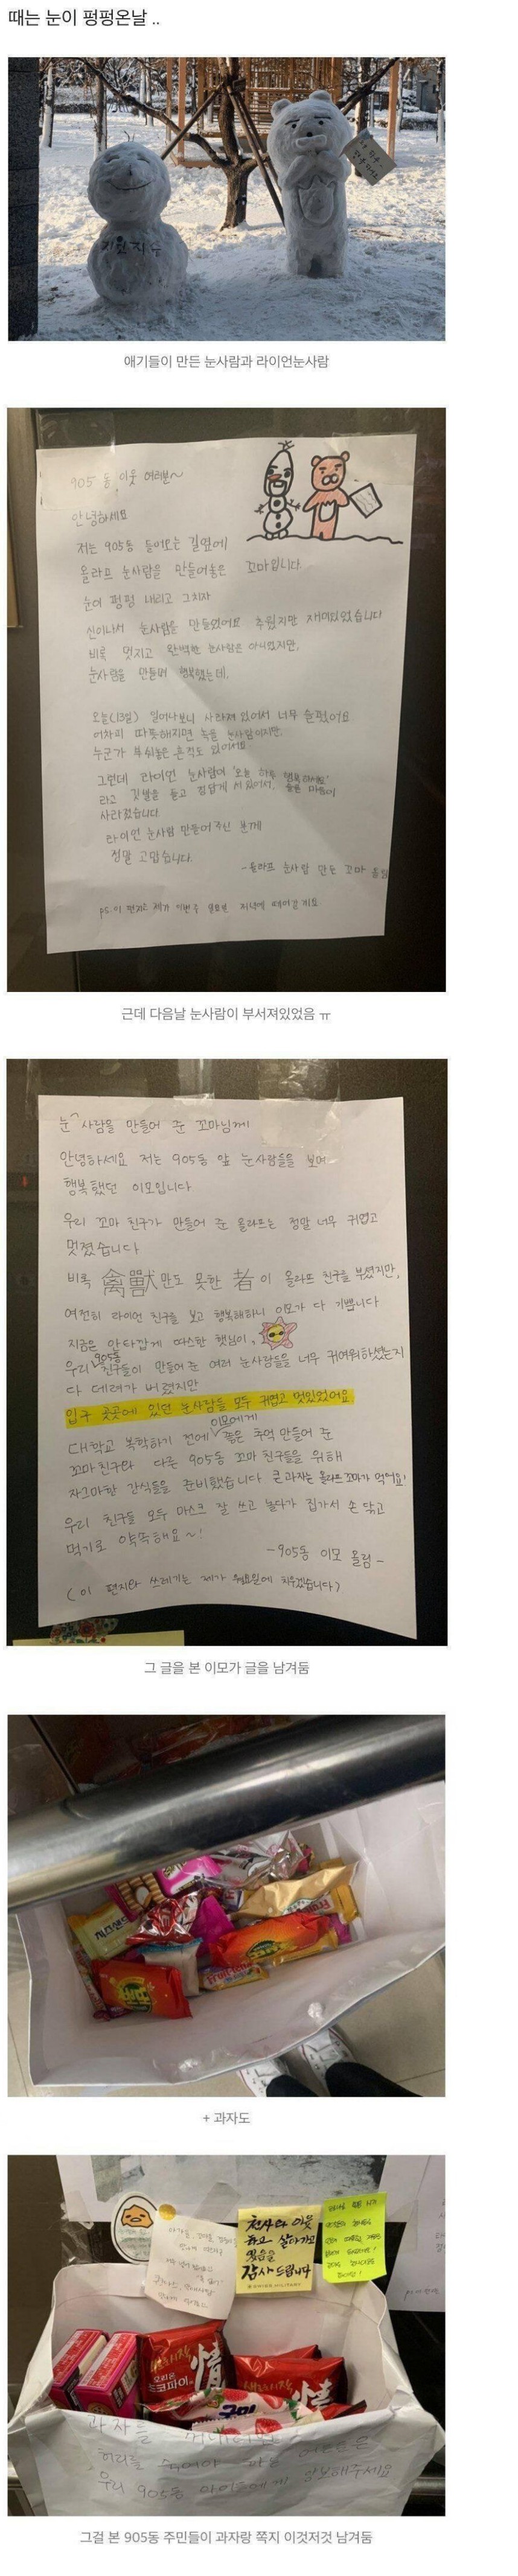 때는 눈이 펑펑온날 ..
지완지수
애기들이 만든 눈사람과 라이언눈사람
905동 이웃 여러분~
안녕하세요
저는 905동 들어오는 길옆에
올라프 눈사람을 만들어놓은 꼬마입니다.
눈이 펑펑 내리고 그치자
신이나서 눈사람을 만들었어요 추웠지만 재미있었습니다
비록 멋지고 완벽한 눈사람은 아니였지만,
눈사람을 만들며 행복했는데,
오늘(13일) 일어나보니 사라져 있어서 너무 슬펐어요
어차피 따뜻해지면 녹을 눈사람이지만
누군가 부숴놓은 흔적도 있어서요.
그런데 라이언 눈사람이 '오늘 하루 행복하세요'
라고 깃발을 들고 정답게 서 있어서, 슬픈 마음이
사라졌습니다
라이언 눈사람 만들어주신 분께
정말 고맙습니다.
-올라프 눈사람 만든 꼬마 올림
ps.이 편지는 제가 이번주 일요일 저녁에 떼어갈게요
근데 다음날 눈사람이 부서져있었음 ㅠ
눈^사람을 만들어 준 꼬마님께
안녕하세요 저는 905동 앞 눈사람들을 보며
행복했던 이모입니다
우리 꼬마 친구가 만들어 준 올라프는 정말 너무 귀엽고
멋졌습니다
비록 禽獸만도 못한 者이 올라프 친구를 부셨지만,
여전히 라이언 친구를 보고 행복해하니 이모가 다 기쁩니다
지금은 안타깝게 따스한 햇님이,
우리 905동 친구들이 만들어 준 여러 눈사람들을 너무 귀여워하셨는지
다 데려가 버렸지만
입구 곳곳에 있던 눈사람들 모두 귀엽고 멋있었어요.
대학교 복학하기 전에 이모에게 좋은 추억 만들어 준
꼬마친구와 다른 905동 꼬마 친구들을 위해
자그마한 간식들을 준비했습니다 큰과자는 올라프꼬마가 먹어요!
우리 친구들 모두 마스크 잘 쓰고 놀다가 집가서 손 닦고
먹기로 약속해요~!
-905동 이모 올림-
(이 편지와 쓰레기는 제가 월요일에 치우겠습니다)
그 글을 본 이모가 글을 남겨둠
+ 과자도
천사와 이웃
하고 살다가고
있음을
감사드립니다
情
情
과자를
허리를 숙여야 하는 어른들은
우리 905동 아이들에게 양보해주세요
그걸 본 905동 주민들이 과자랑 쪽지 이것저것 남겨둠